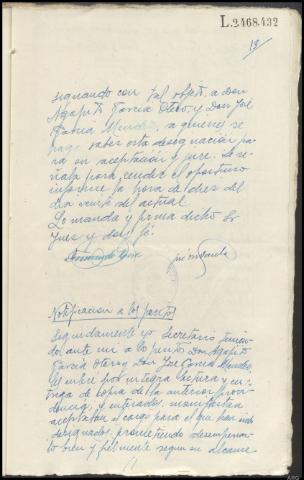 L.2468.432
13
signando con tal objeto a don
Agapito Garcia Otero y Don José
Garcia Mendez, a quienes se
haga saber esta designacion pa
ra su aceptacion y jure. Se se
ñala para rendir el oportuno
informe la hora de diez del
dia veinte del actual
Lo manda y firma dicho Sr
Juez y doy fé.
Notificacion a los peritos
seguidamente yo Secretario tenien
do ante mi a los peritos Don Agapito
Garcia Otero y Don José Garcia Mendez
les entere por integra lectura y en
trega de copia de la anterior provi
dencia, y enterados, manifiestan
aceptaban el cargo para el que han sido
designados, prometiendo desempeñar
lo bien y fielmente segun su alcance